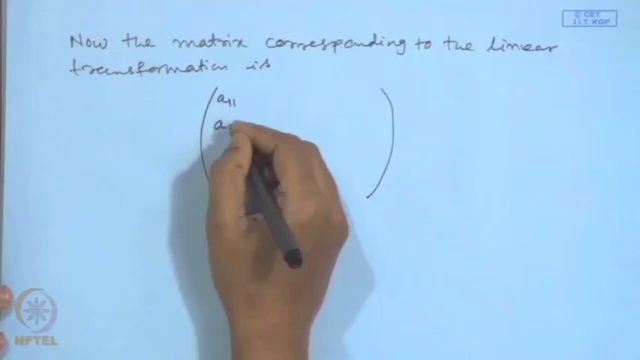 © CET
I.I.T. KGP
Now the matrix corresponding to the linear
transformation is
a11
a
NPTEL